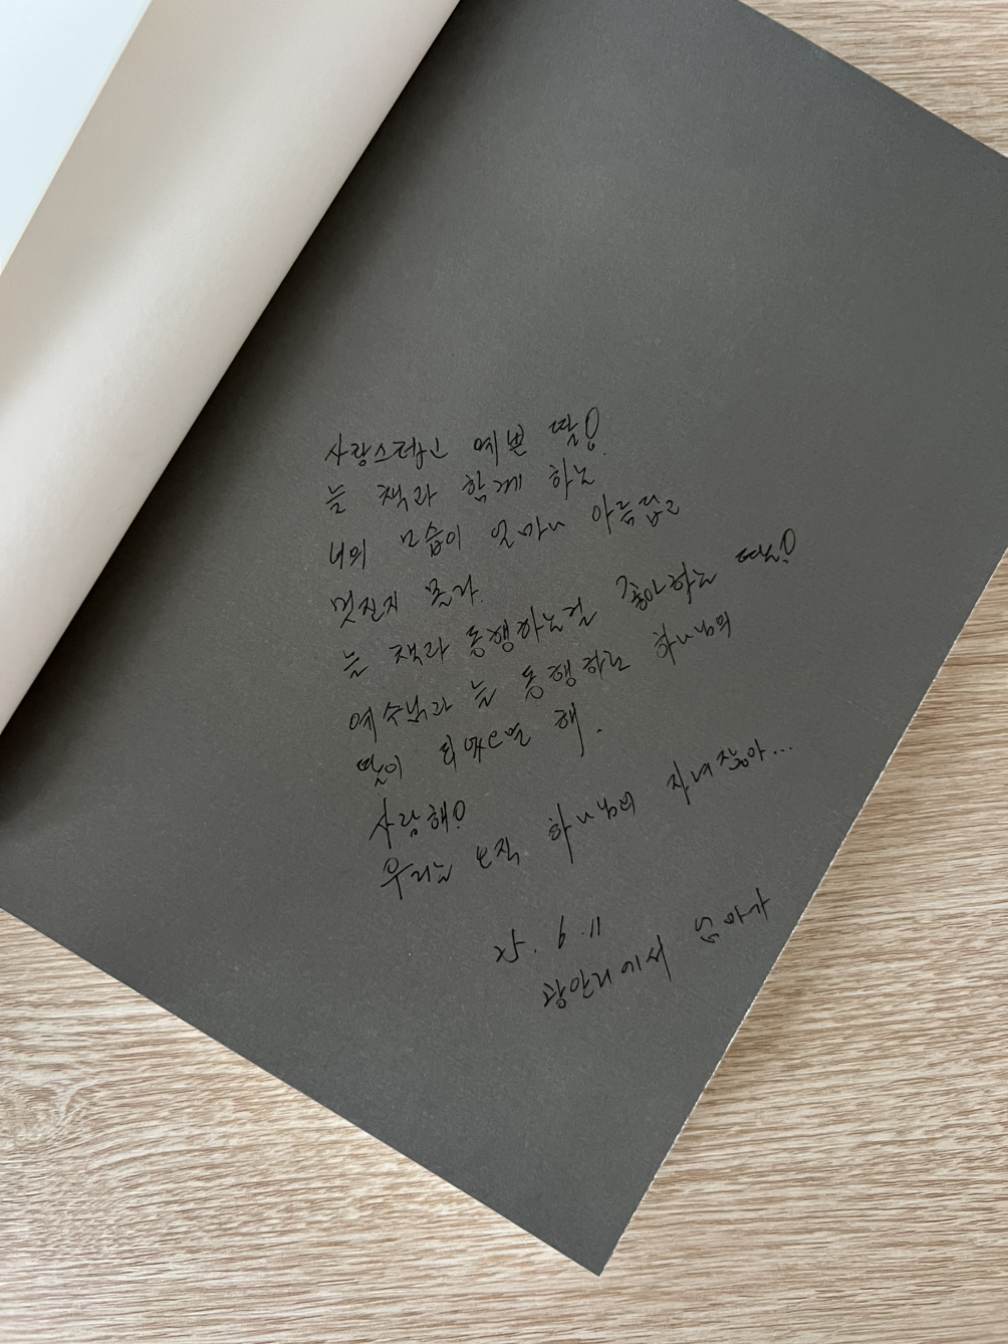 사랑스런 예쁜 딸!
늘 책과 함께 하는
너의 모습이 얼마나 아름답고
멋진지 몰라.
늘 책과 동행하는걸 좋아하는 딸!
예수님과 늘 동행하는 하나님의
딸이 되었으면 해.
사랑해!
우리는 오직 하나님의 자녀잖아...
25. 6. 11
광안리에서 엄마가